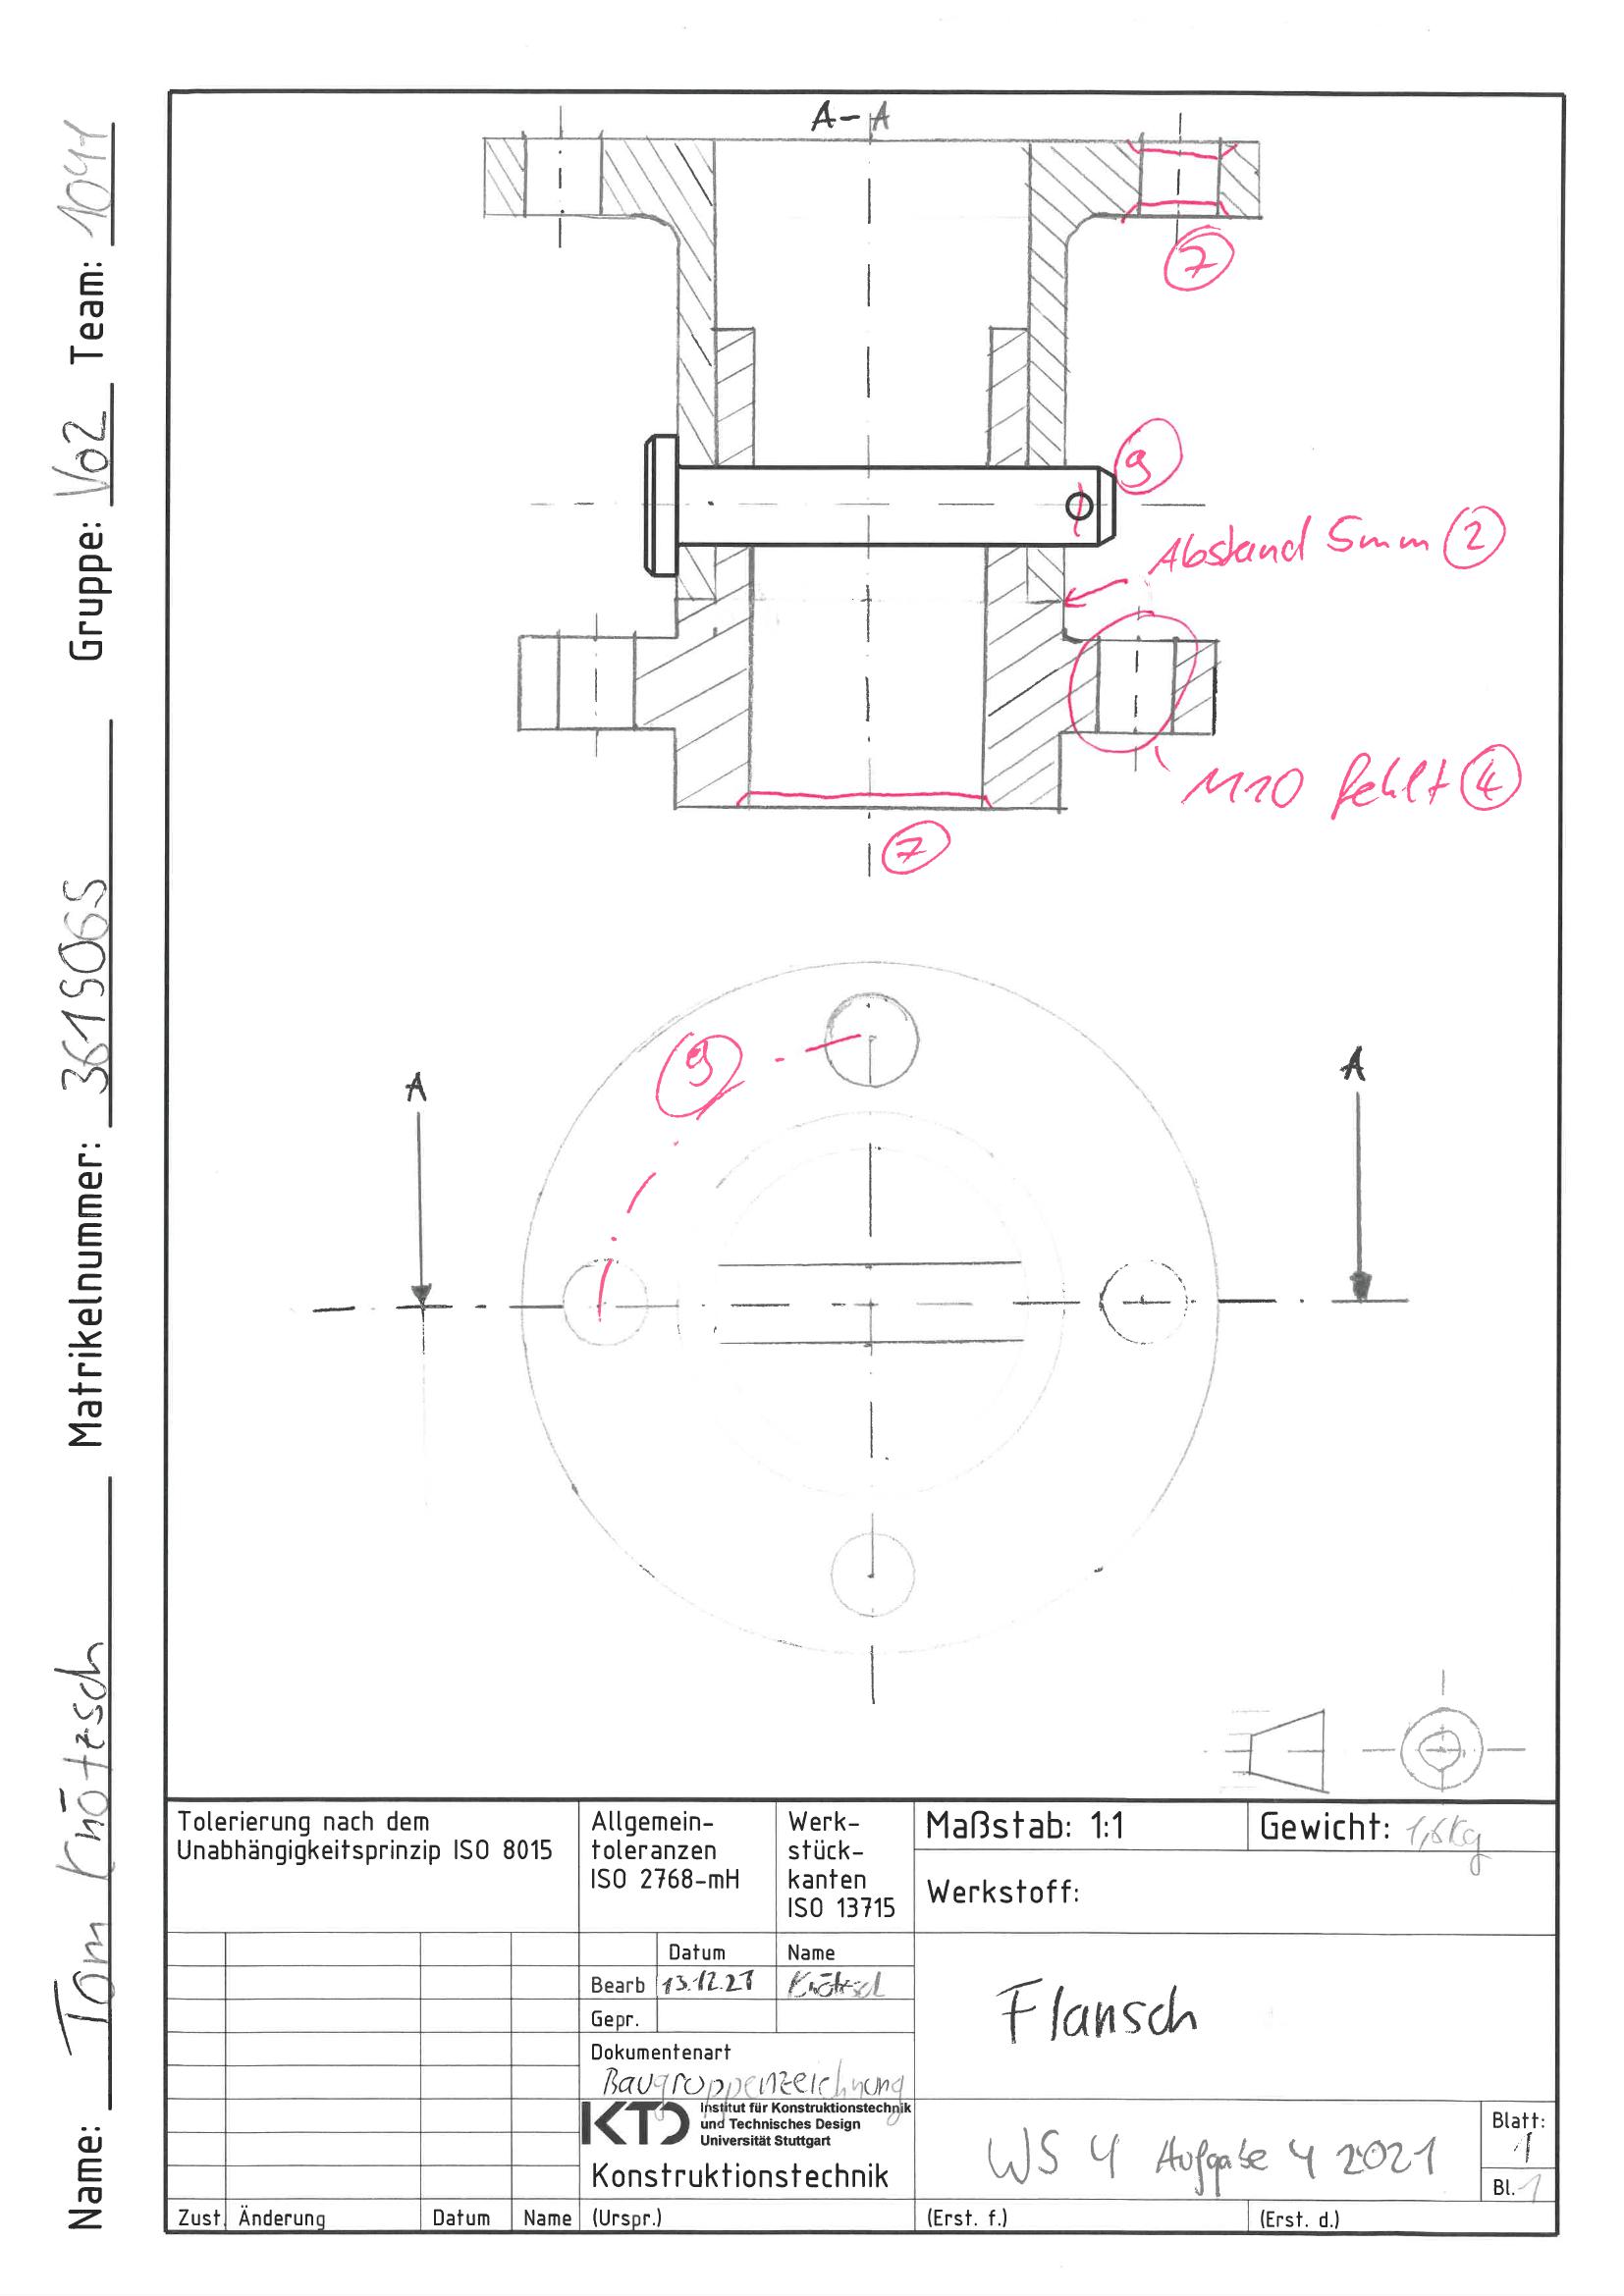 A-A
7
9
Abstand 5mm 2
M10 fehlt 4
7
9
A
A
Name: Tom Knötzsch Matrikelnummer: 3615065 Gruppe: Vo2 Team: 1041
Tolerierung nach dem
Unabhängigkeitsprinzip ISO 8015
Allgemein-
toleranzen
ISO 2768-mH
Werk-
stück-
kanten
ISO 13715
Maßstab: 1:1
Gewicht: 1,6kg
Werkstoff:
Datum Name
Bearb 13.12.21 Knötzsch
Gepr.
Dokumentenart
Baugruppenzeichnung
Flansch
KTD
Institut für Konstruktionstechnik
und Technisches Design
Universität Stuttgart
Konstruktionstechnik
WS 4 Aufgabe 4 2021
Blatt:
1
Bl. 1
Zust. Änderung Datum Name (Urspr.) (Erst. f.) (Erst. d.)